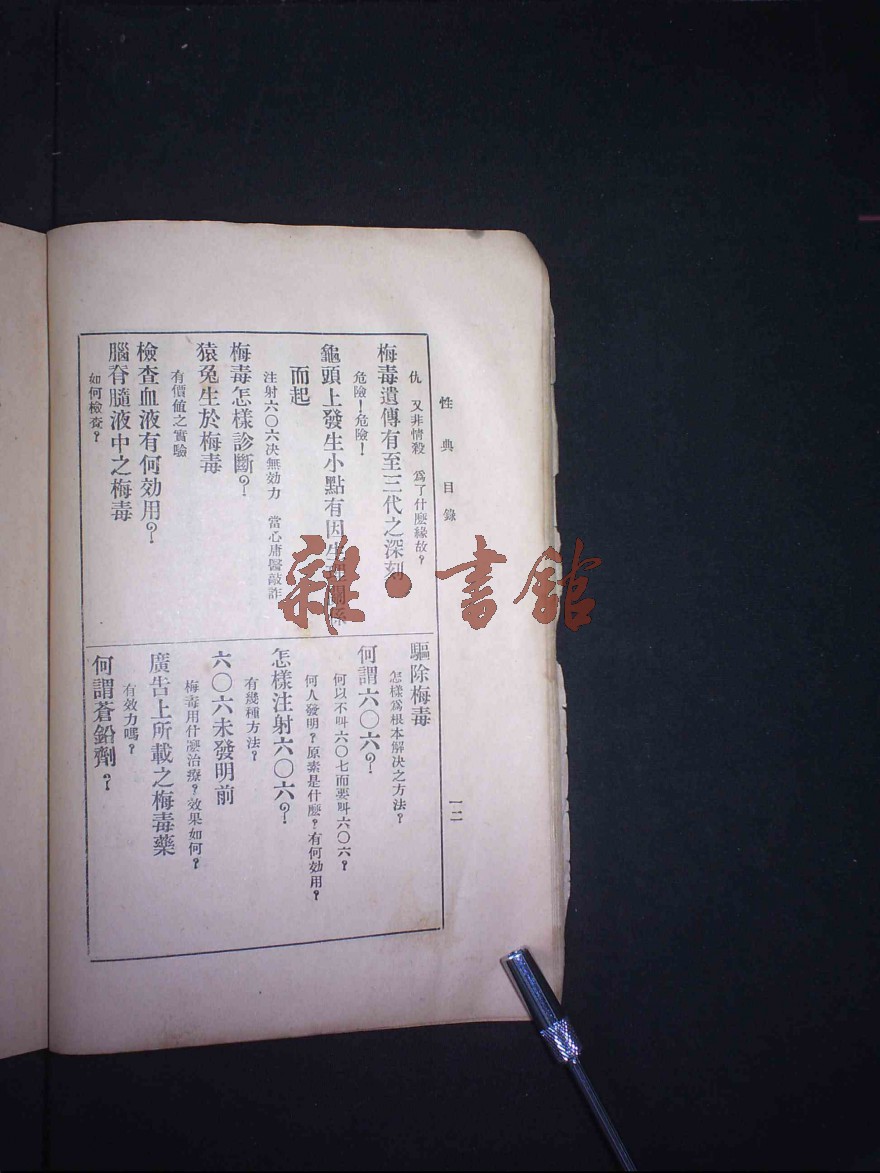 性典目錄
一二
仇　又非情殺　爲了什麽緣故？
梅毒遺傳有至三代之深刻
危險！危險！
龜頭上發生小點有因生理關係
而起
注射六〇六决無効力　當心庸醫敲詐
梅毒怎樣診斷？
猿兔生於梅毒
有價値之實驗
檢查血液有何効用？
腦脊髓液中之梅毒
如何檢查？
驅除梅毒
怎樣爲根本解决之方法？
何謂六〇六？
何以不叫六〇七而要叫六〇六？
何人發明？原素是什麽？有何効用？
怎樣注射六〇六？
有幾種方法？
六〇六未發明前
梅毒用什麽治療？效果如何？
廣告上所載之梅毒藥
有效力嗎？
何謂蒼鉛劑？
雜·書館